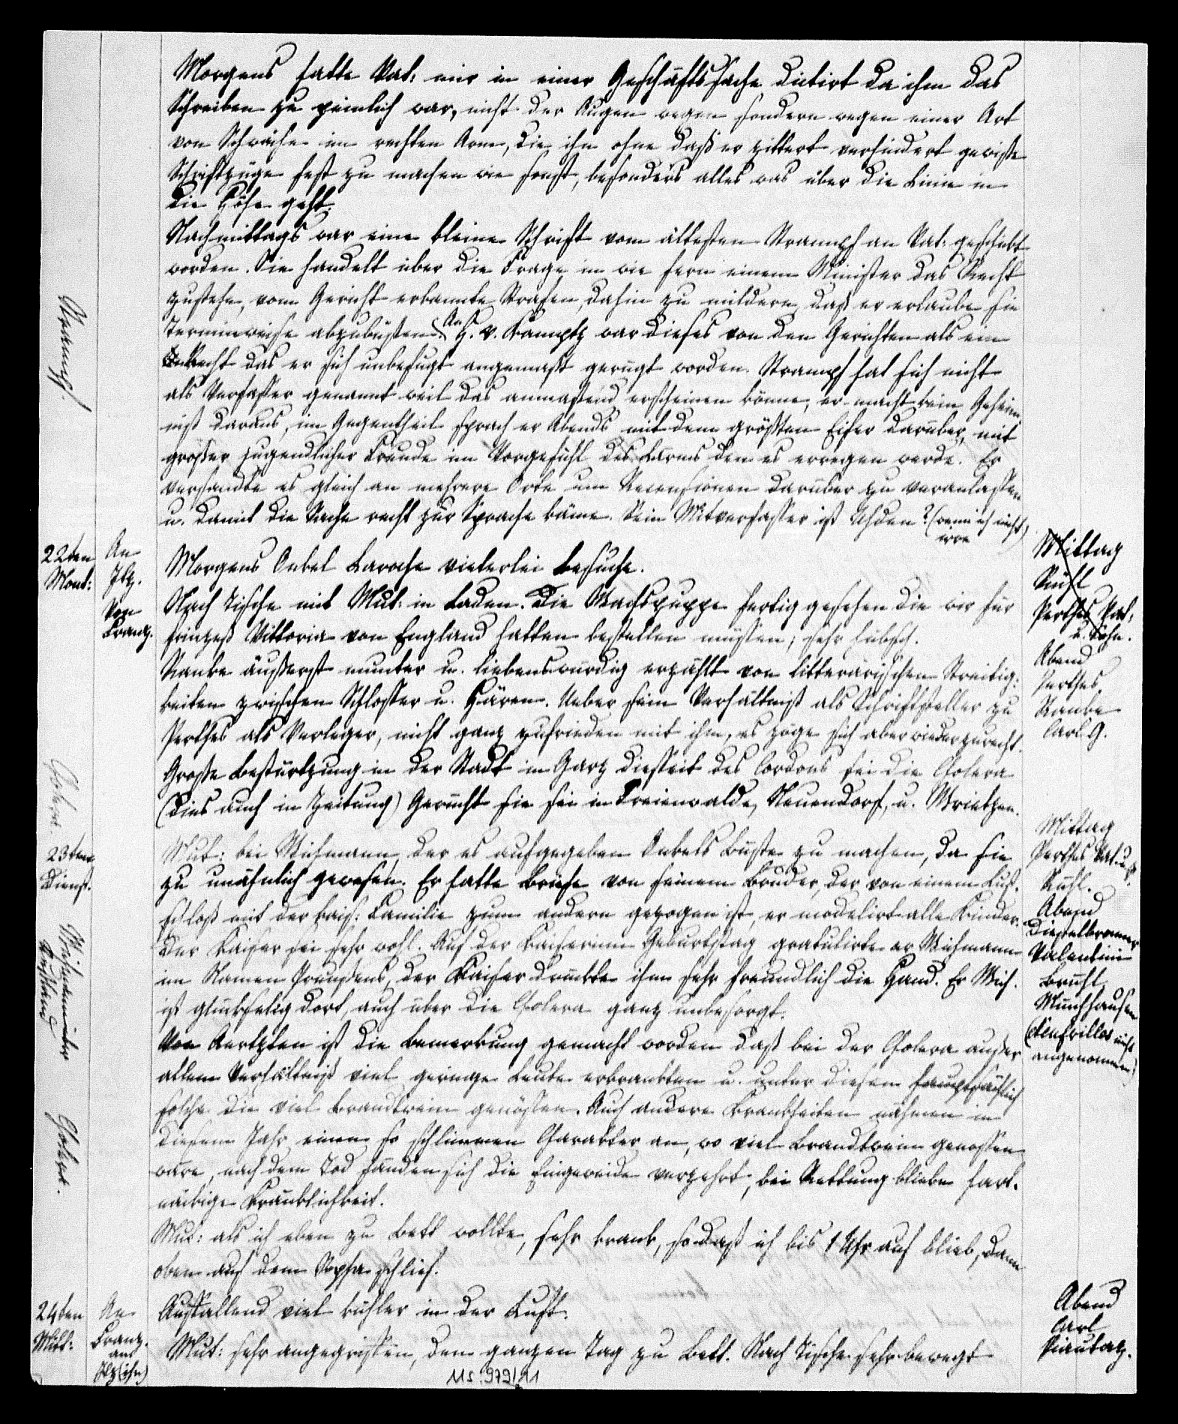 Morgens hatte Vat: mir in einer Geschäftssache dictirt da ihm das
Schreiben zu peinlich war, nicht der Augen wegen sondern wegen einer Art
von Schwäche im rechten Arm, die ihn ohne daß er zittert verhindert gewisse
Schriftzüge fest zu machen wie sonst, besonders alles was über die Linie in
die Höhe geht.
Nachmittags war eine kleine Schrift vom ältesten Strampf an Vat: geschickt
worden. Sie handelt über die Frage in wie fern einem Minister das Recht
zustehe, vom Gericht erkannte Strafen dahin zu mildern, daß er erlaube sie
terminweise abzubüßen. An H. v. Kamptz war dieses von den Gerichten als ein
Recht das er sich unbefugt angemaßt gerügt worden. Strampf hat sich nicht
als Verfasser genannt weil das anmaßend erscheinen könne, er macht kein Geheim
niß daraus, im Gegentheil sprach er Abends mit dem größten Eifer darüber, mit
großer jugendlicher Freude im Vorgefühl des Lärms den es erregen werde. Er
versandte es gleich an mehrere Orte um Recensionen darüber zu veranlassen
u. damit die Sache recht zur Sprache käme. Sein Mitverfasser ist Uhden? (wenn ich nicht
irre)
Strampf.
22ten
Mont:
An
Itz.
Von
Franz.
Morgens Onkel Laroche vielerlei Besuche.
Nach Tische mit Mut: in Laden. Die Wachspuppe fertig gesehen die wir für
Prinzeß Vittoria von England hatten bestellen müssen; sehr hübsch.
Ranke äußerst munter u. liebenswürdig erzählt von litterarischen Streitig:
keiten zwischen Schlosser u. Hären. Ueber sein Verhältniß als Schriftsteller zu
Perthes als Verleger, nicht ganz zufrieden mit ihm, es zöge sich aber wieder zurecht.
Große Bestürtzung in der Stadt in Garz diesseit des Cordons sei die Cholera
(dies auch in Zeitung) Gerücht sie sei in Freienwalde, Neuendorf, u. Wrietzen.
Mittag
Rühl
Perthes Vat:
u. Sohn.
Abend
Perthes
Ranke
Carl G.
Cholera.
23ten
Dienst.
Mut: bei Wichmann, der es aufgegeben Onkels Büste zu machen, da sie
zu unähnlich gewesen. Er hatte Briefe von seinem Bruder, der von einem Lust:
schloß mit der kais: Familie zum andern gezogen ist, er modelirt alle Kinder.
Der Kaiser sei sehr wohl. Auf der Kaiserinn Geburtstag gratulirte er Wichmann
im Namen Preußens, der Kaiser drückte ihm sehr freundlich die Hand. Er Wich.
ist glückselig dort, auch über die Cholera ganz unbesorgt.
Von Aertzten ist die Bemerkung gemacht worden daß bei der Cholera außer
allem Verhältniß viel geringe Leute erkrankten u. unter diesen hauptsächlich
solche die viel Brandtwein genößen. Auch andere Krankheiten nähmen in
diesem Jahr einen so schlimmen Charakter an, wo viel Brandtwein genossen
wäre, nach dem Tod fänden sich die Eingeweide verzehrt, bei Rettung bliebe hart:
näckige Kränklichkeit.
Mut: als ich eben zu Bett wollte, sehr krank, so daß ich bis 1 Uhr auf blieb, dann
oben auf dem Sopha schlief.
Mittag
Perthes Vat: u. S.
Rühl.
Abend
Valentini
Brühl
Münchhausen
nicht
angenommen)
Rußland
Cholera.
24ten
Mitt:
An
Franz.
Auffallend viel kühler in der Luft.
Mut: sehr angegriffen, den ganzen Tag zu Bett. Nach Tische sehr bewegt
Abend
Carl